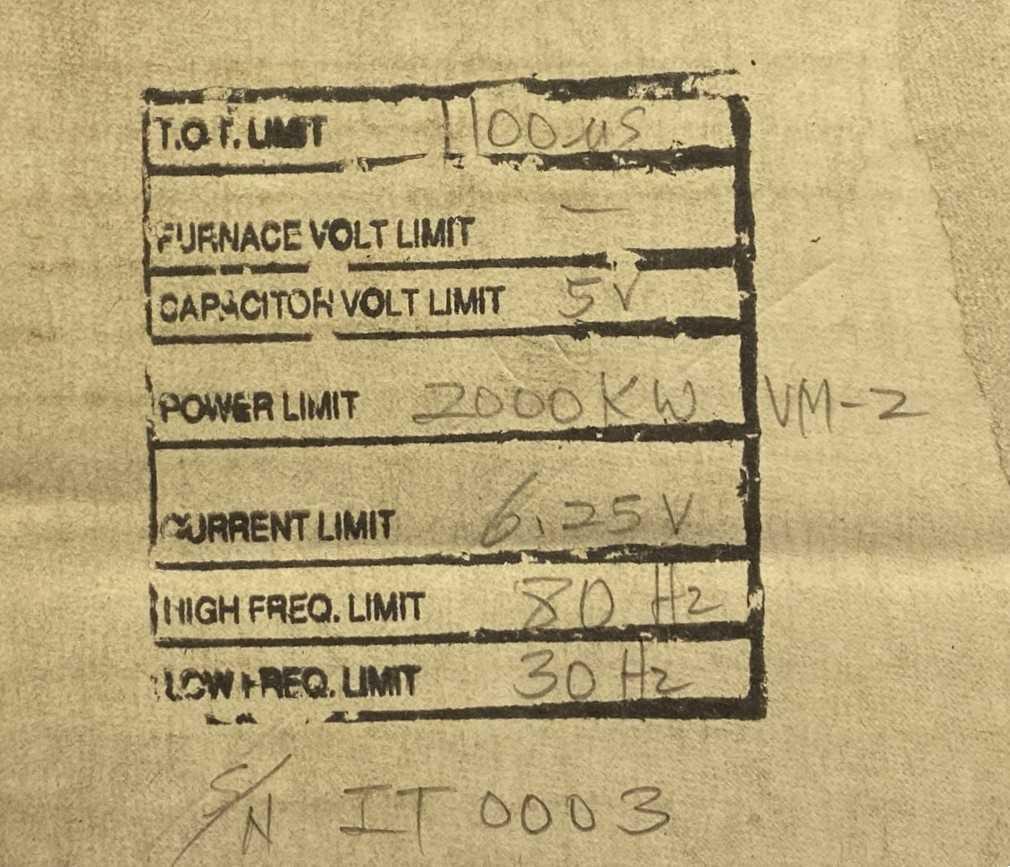 T.O.T. LIMIT 1100 µs
FURNACE VOLT LIMIT —
CAPACITOR VOLT LIMIT 5V
POWER LIMIT 2000 KW VM-2
CURRENT LIMIT 6.25 V
HIGH FREQ. LIMIT 80 Hz
LOW FREQ. LIMIT 30 Hz
S/N IT 0003